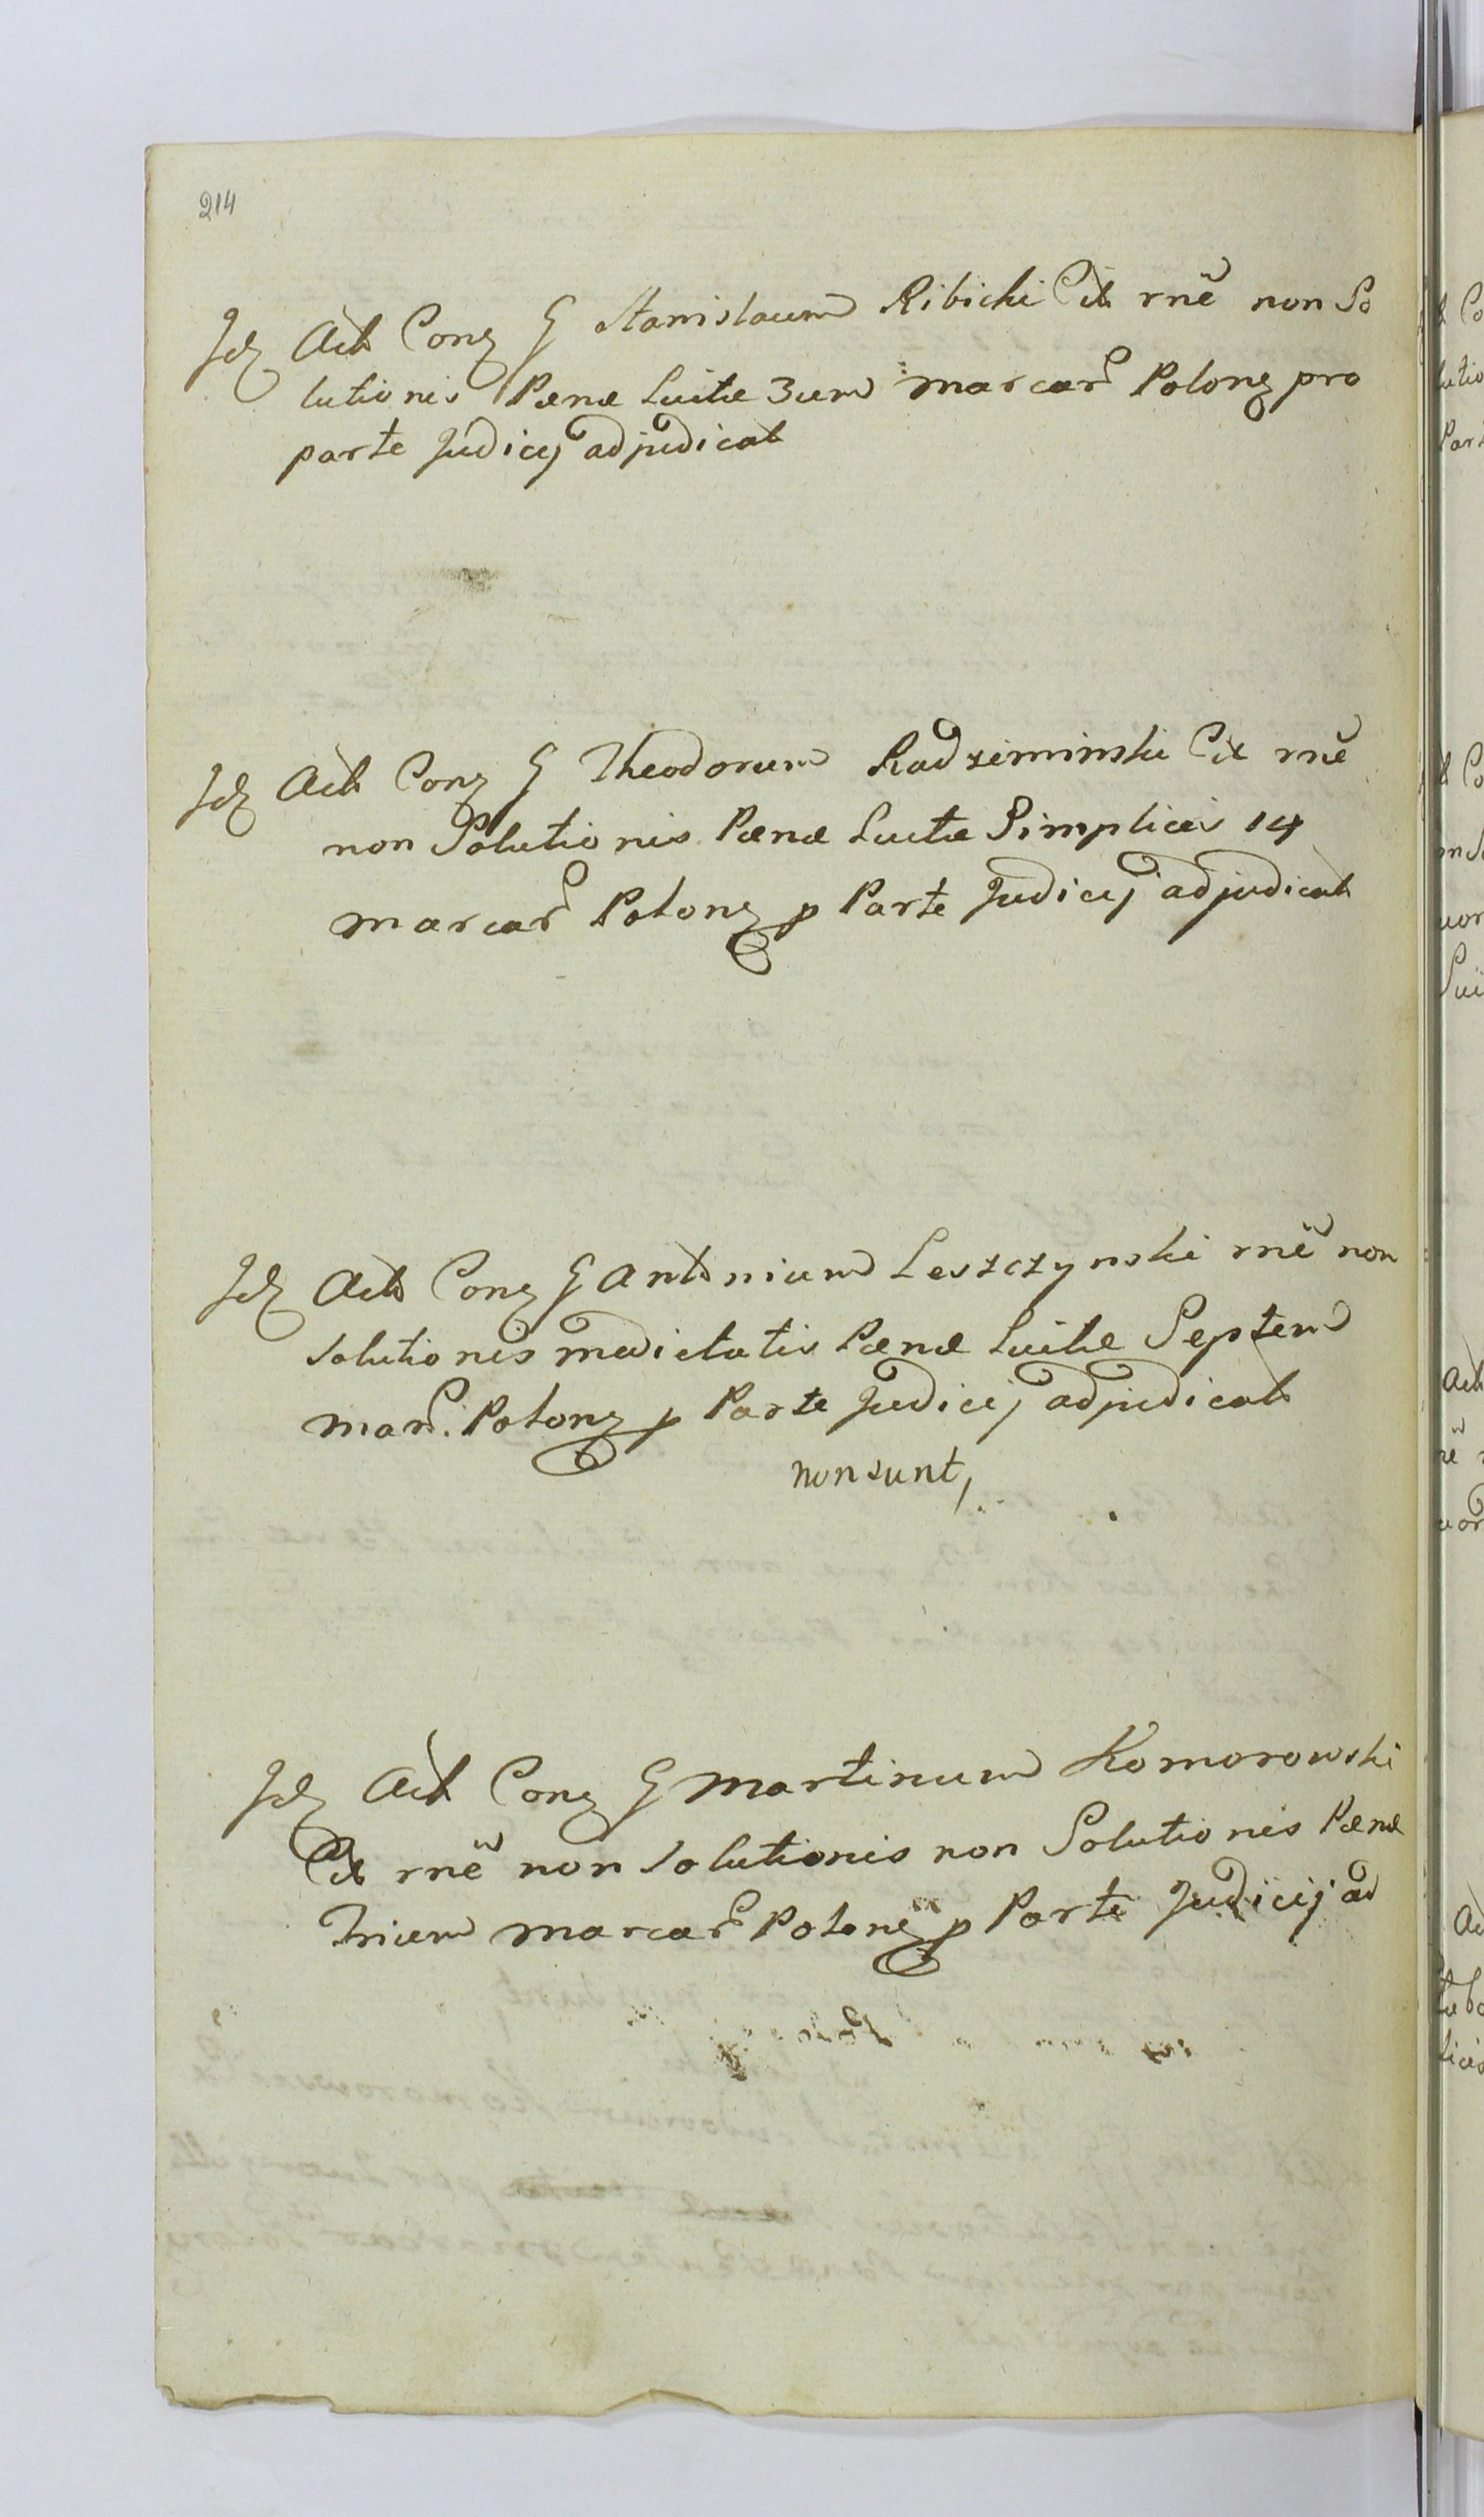 214
Idz Act Conz G Stanislaum Ribicki Cit rnē non So
lutionis Pænæ Luitæ 3um marcar Polonz pro
parte Judicij adjudicat
Idz Act Conz G Theodorum Radziminski Cit rnē
non Solutionis Pænæ Luitæ Simplicis 14
marcar Polonz p Parte Judicij adjudicat
Idz Act Conz G Antonium Leszczynski rnē non
solutionis medietatis Pænæ Luitæ Septem
mar. Polonz p Parte Judicij adjudicat
non sunt,
Idz Act Conz G Martinum Komorowski
Cit rnē non solutionis non Solutionis Pænæ
trium marcar Polonz p Parte Judicij ad